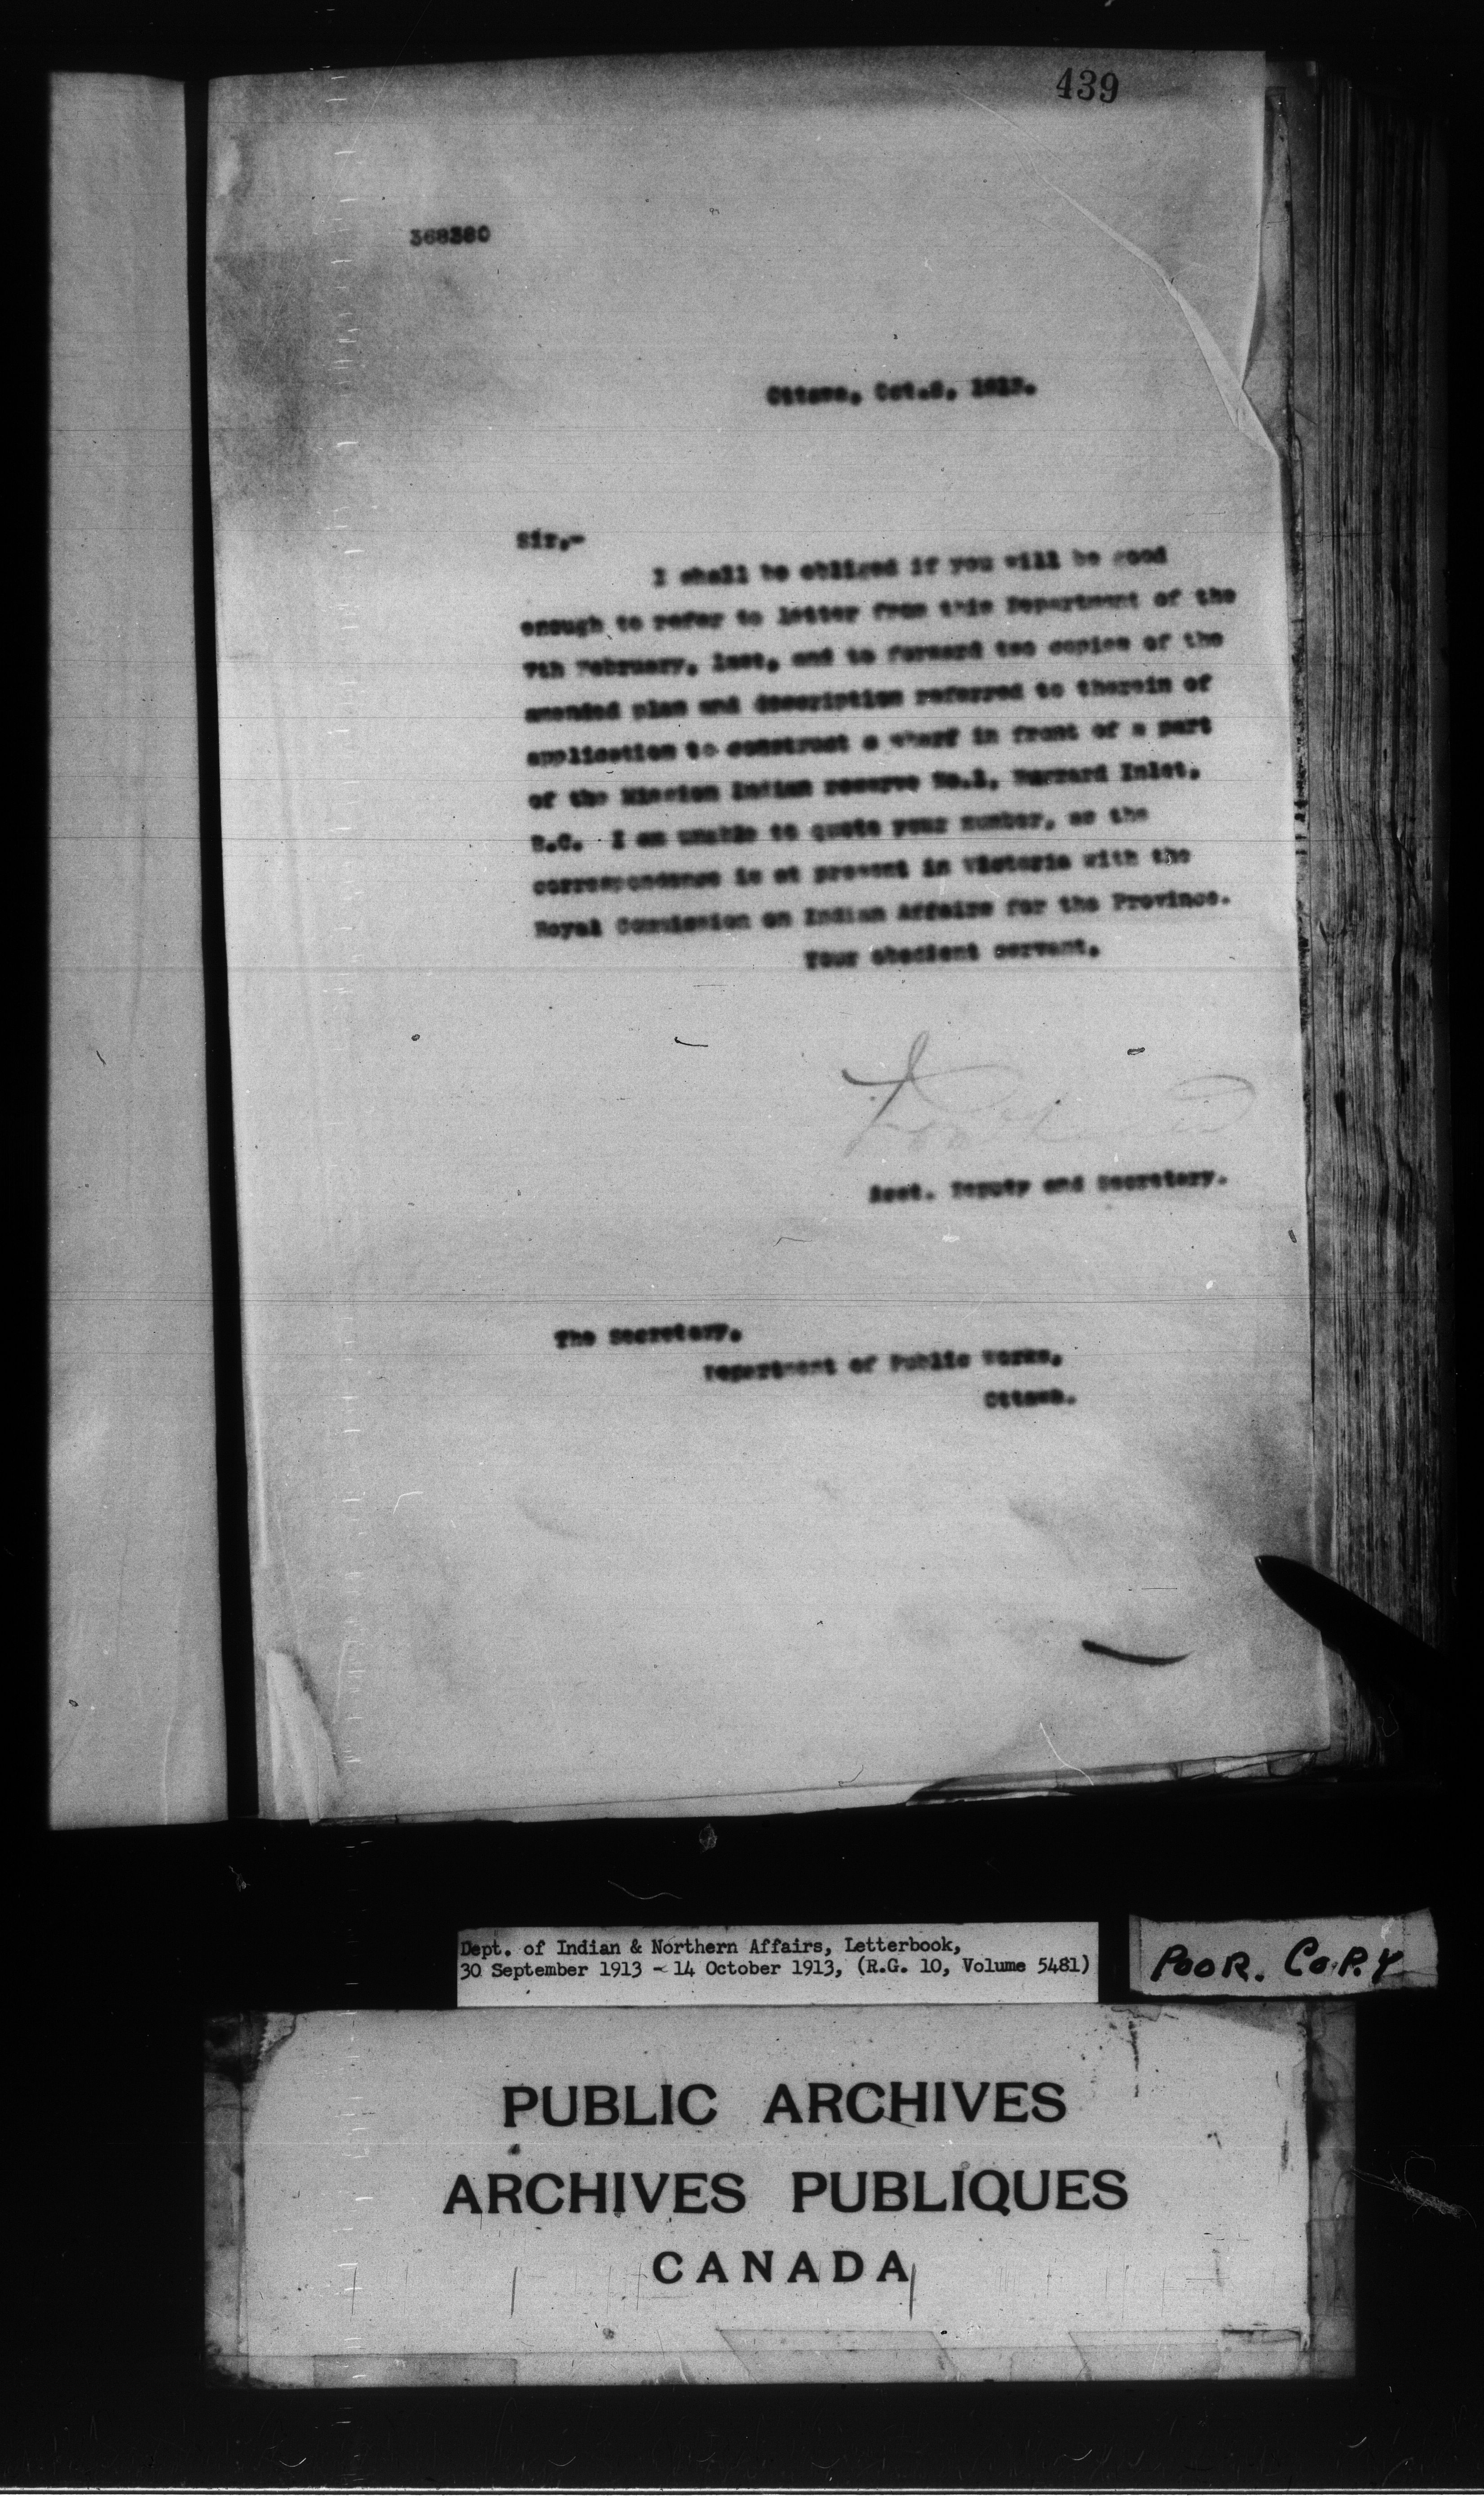 439
368380
Ottawa, Oct. 1913.
Sir,-
I shall be obliged if you will be good
enough to refer to letter from this Department of the
7th February, last, and to forward two copies of the
amended plan and description referred to therein of
application to construct a wharf in front of a part
of the Mission Indian reserve No.1, Burrard Inlet,
B.C. I am unable to quote your number, as the
correspondence is at present in Victoria with the
Royal Commission on Indian Affairs for the Province.
Your obedient servant,
Asst. Deputy and Secretary.
The Secretary,
Department of Public Works,
Ottawa.
Dept. of Indian & Northern Affairs, Letterbook,
30 September 1913 - 14 October 1913, (R.G. 10, Volume 5481)
POOR. COPY
PUBLIC ARCHIVES
ARCHIVES PUBLIQUES
CANADA